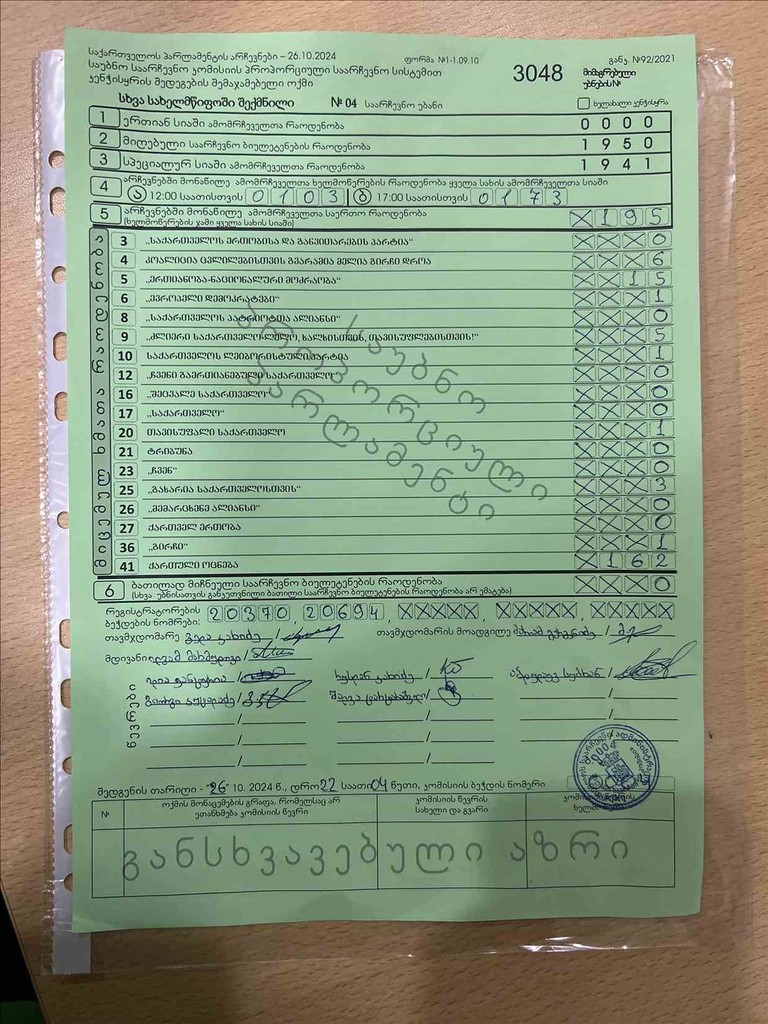 საქართველოს პარლამენტის არჩევნები – 26.10.2024 ფორმა №1-1.09.10 განკ. №92/2021
საუბნო საარჩევნო კომისიის პროპორციული საარჩევნო სისტემით 3048 მიმაგრებული
კენჭისყრის შედეგების შემაჯამებელი ოქმი უბნების №
სხვა სახელმწიფოში შექმნილი № 04 საარჩევნო უბანი ხელახალი კენჭისყრა
1 ერთიან სიაში ამომრჩეველთა რაოდენობა 0 0 0 0
2 მიღებული საარჩევნო ბიულეტენების რაოდენობა 1 9 5 0
3 სპეციალურ სიაში ამომრჩეველთა რაოდენობა 1 9 4 1
4 არჩევნებში მონაწილე ამომრჩეველთა ხელმოწერების რაოდენობა ყველა სახის ამომრჩეველთა სიაში
ა 12:00 საათისთვის 0 1 0 3 ბ 17:00 საათისთვის 0 1 7 3
5 არჩევნებში მონაწილე ამომრჩეველთა საერთო რაოდენობა X 1 9 5
(ხელმოწერების ჯამი ყველა სახის სიაში)
მიცემულ ხმათა რაოდენობა
3 „საქართველოს ერთობისა და განვითარების პარტია“ X X X 0
4 კოალიცია ცვლილებისთვის გვარამია მელია გირჩი დროა X X X 6
5 „ერთიანობა-ნაციონალური მოძრაობა“ X X 1 5
6 „ევროპელი დემოკრატები“ X X X 1
8 „საქართველოს პატრიოტთა ალიანსი“ X X X 0
9 „ძლიერი საქართველო-ლელო, ხალხისთვის, თავისუფლებისთვის!“ X X X 5
10 საქართველოს ლეიბორისტული პარტია X X X 1
12 „ჩვენი გაერთიანებული საქართველო“ X X X 0
16 „შეცვალე საქართველო“ X X X 0
17 „საქართველო“ X X X 0
20 თავისუფალი საქართველო X X X 1
21 ტრიბუნა X X X 0
23 „ჩვენ“ X X X 0
25 „გახარია საქართველოსთვის“ X X X 3
26 „მემარცხენე ალიანსი“ X X X 0
27 ქართველ ერთობა X X X 0
36 „გირჩი“ X X X 1
41 ქართული ოცნება X 1 6 2
საუბნო
პროპორციული
პარლამენტი
6 ბათილად მიჩნეული საარჩევნო ბიულეტენების რაოდენობა X X X 0
(სხვა უბნისათვის განკუთვნილი ბათილი საარჩევნო ბიულეტენების რაოდენობა არ ემატება)
რეგისტრატორების
ბეჭდების ნომრები: 20370, 20694, XXXXX, XXXXX, XXXXX
თავმჯდომარე / თავმჯდომარის მოადგილე /
მდივანი /
წევრები
შედგენის თარიღი - "26" 10. 2024 წ., დრო 22 საათი 04 წუთი, კომისიის ბეჭდის ნომერი
№ ოქმის მონაცემების გრაფა, რომელსაც არ ეთანხმება კომისიის წევრი კომისიის წევრის სახელი და გვარი
განსხვავებული აზრი